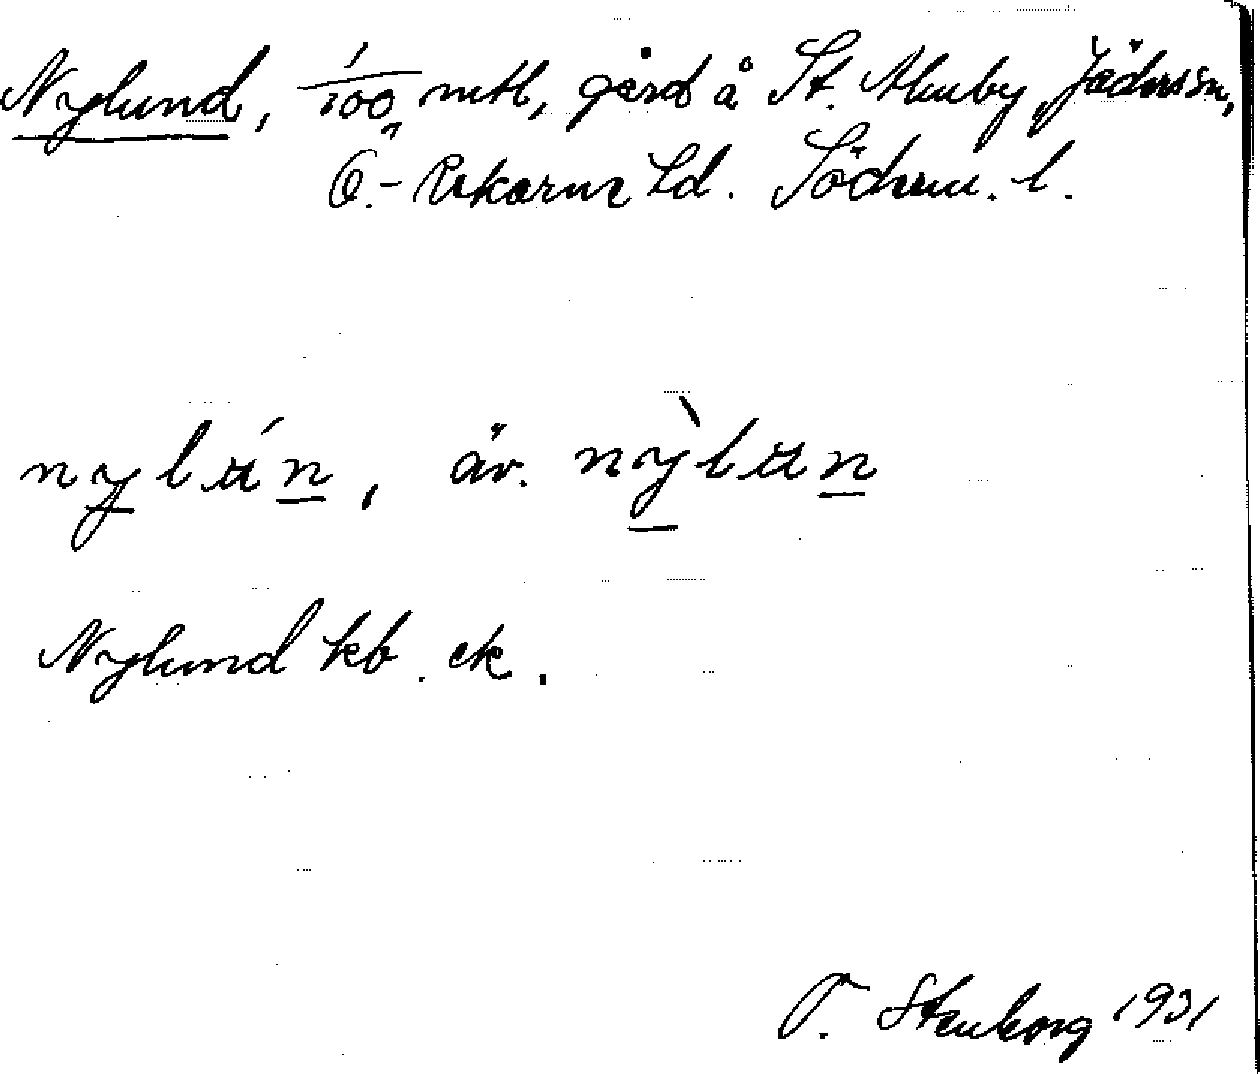 Nylund, 1/100 mtl, gård å St. Åkeby, Jäders sn,
Ö.-Rekarne hd. Söderm. l.
nylún, äv. nỳlun
Nylund kb. ek.
T. Stenborg 1931